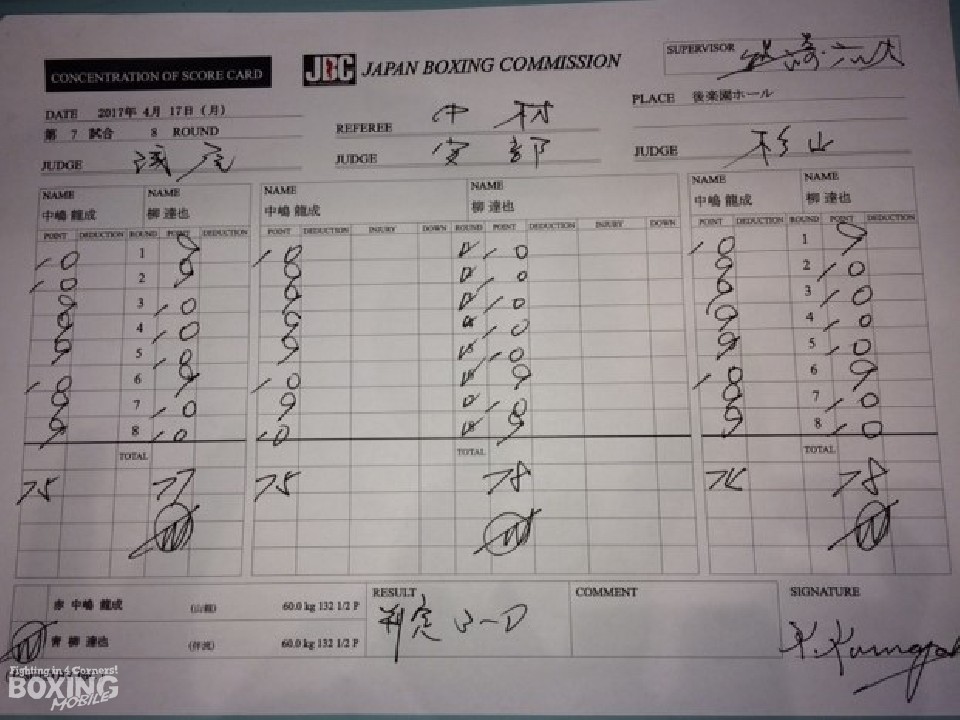 SUPERVISOR
CONCENTRATION OF SCORE CARD
JBC JAPAN BOXING COMMISSION
DATE 2017年 4月 17日 (月)
PLACE 後楽園ホール
第 7 試合 8 ROUND
REFEREE 中村
JUDGE
JUDGE 安部
JUDGE 杉山
NAME NAME NAME NAME NAME NAME
中嶋 龍成 柳 達也 中嶋 龍成 柳 達也 中嶋 龍成 柳 達也
POINT DEDUCTION ROUND POINT DEDUCTION POINT DEDUCTION INJURY DOWN ROUND POINT DEDUCTION INJURY DOWN POINT DEDUCTION ROUND POINT DEDUCTION
10 1 9 10 10 10 1 9
10 2 9 9 10 9 2 10
9 3 10 9 10 9 3 10
9 4 10 9 10 9 4 10
9 5 10 9 10 9 5 10
10 6 9 10 9 10 6 9
9 7 10 9 10 9 7 10
9 8 10 10 9 9 8 10
TOTAL TOTAL TOTAL
75 77 75 78 78
赤 中嶋 龍成 (山龍) 60.0 kg 132 1/2 P
青 柳 達也 (伴流) 60.0 kg 132 1/2 P
RESULT
判定 3-0
COMMENT
SIGNATURE
Fighting in 4 Corners!
BOXING
MOBILE